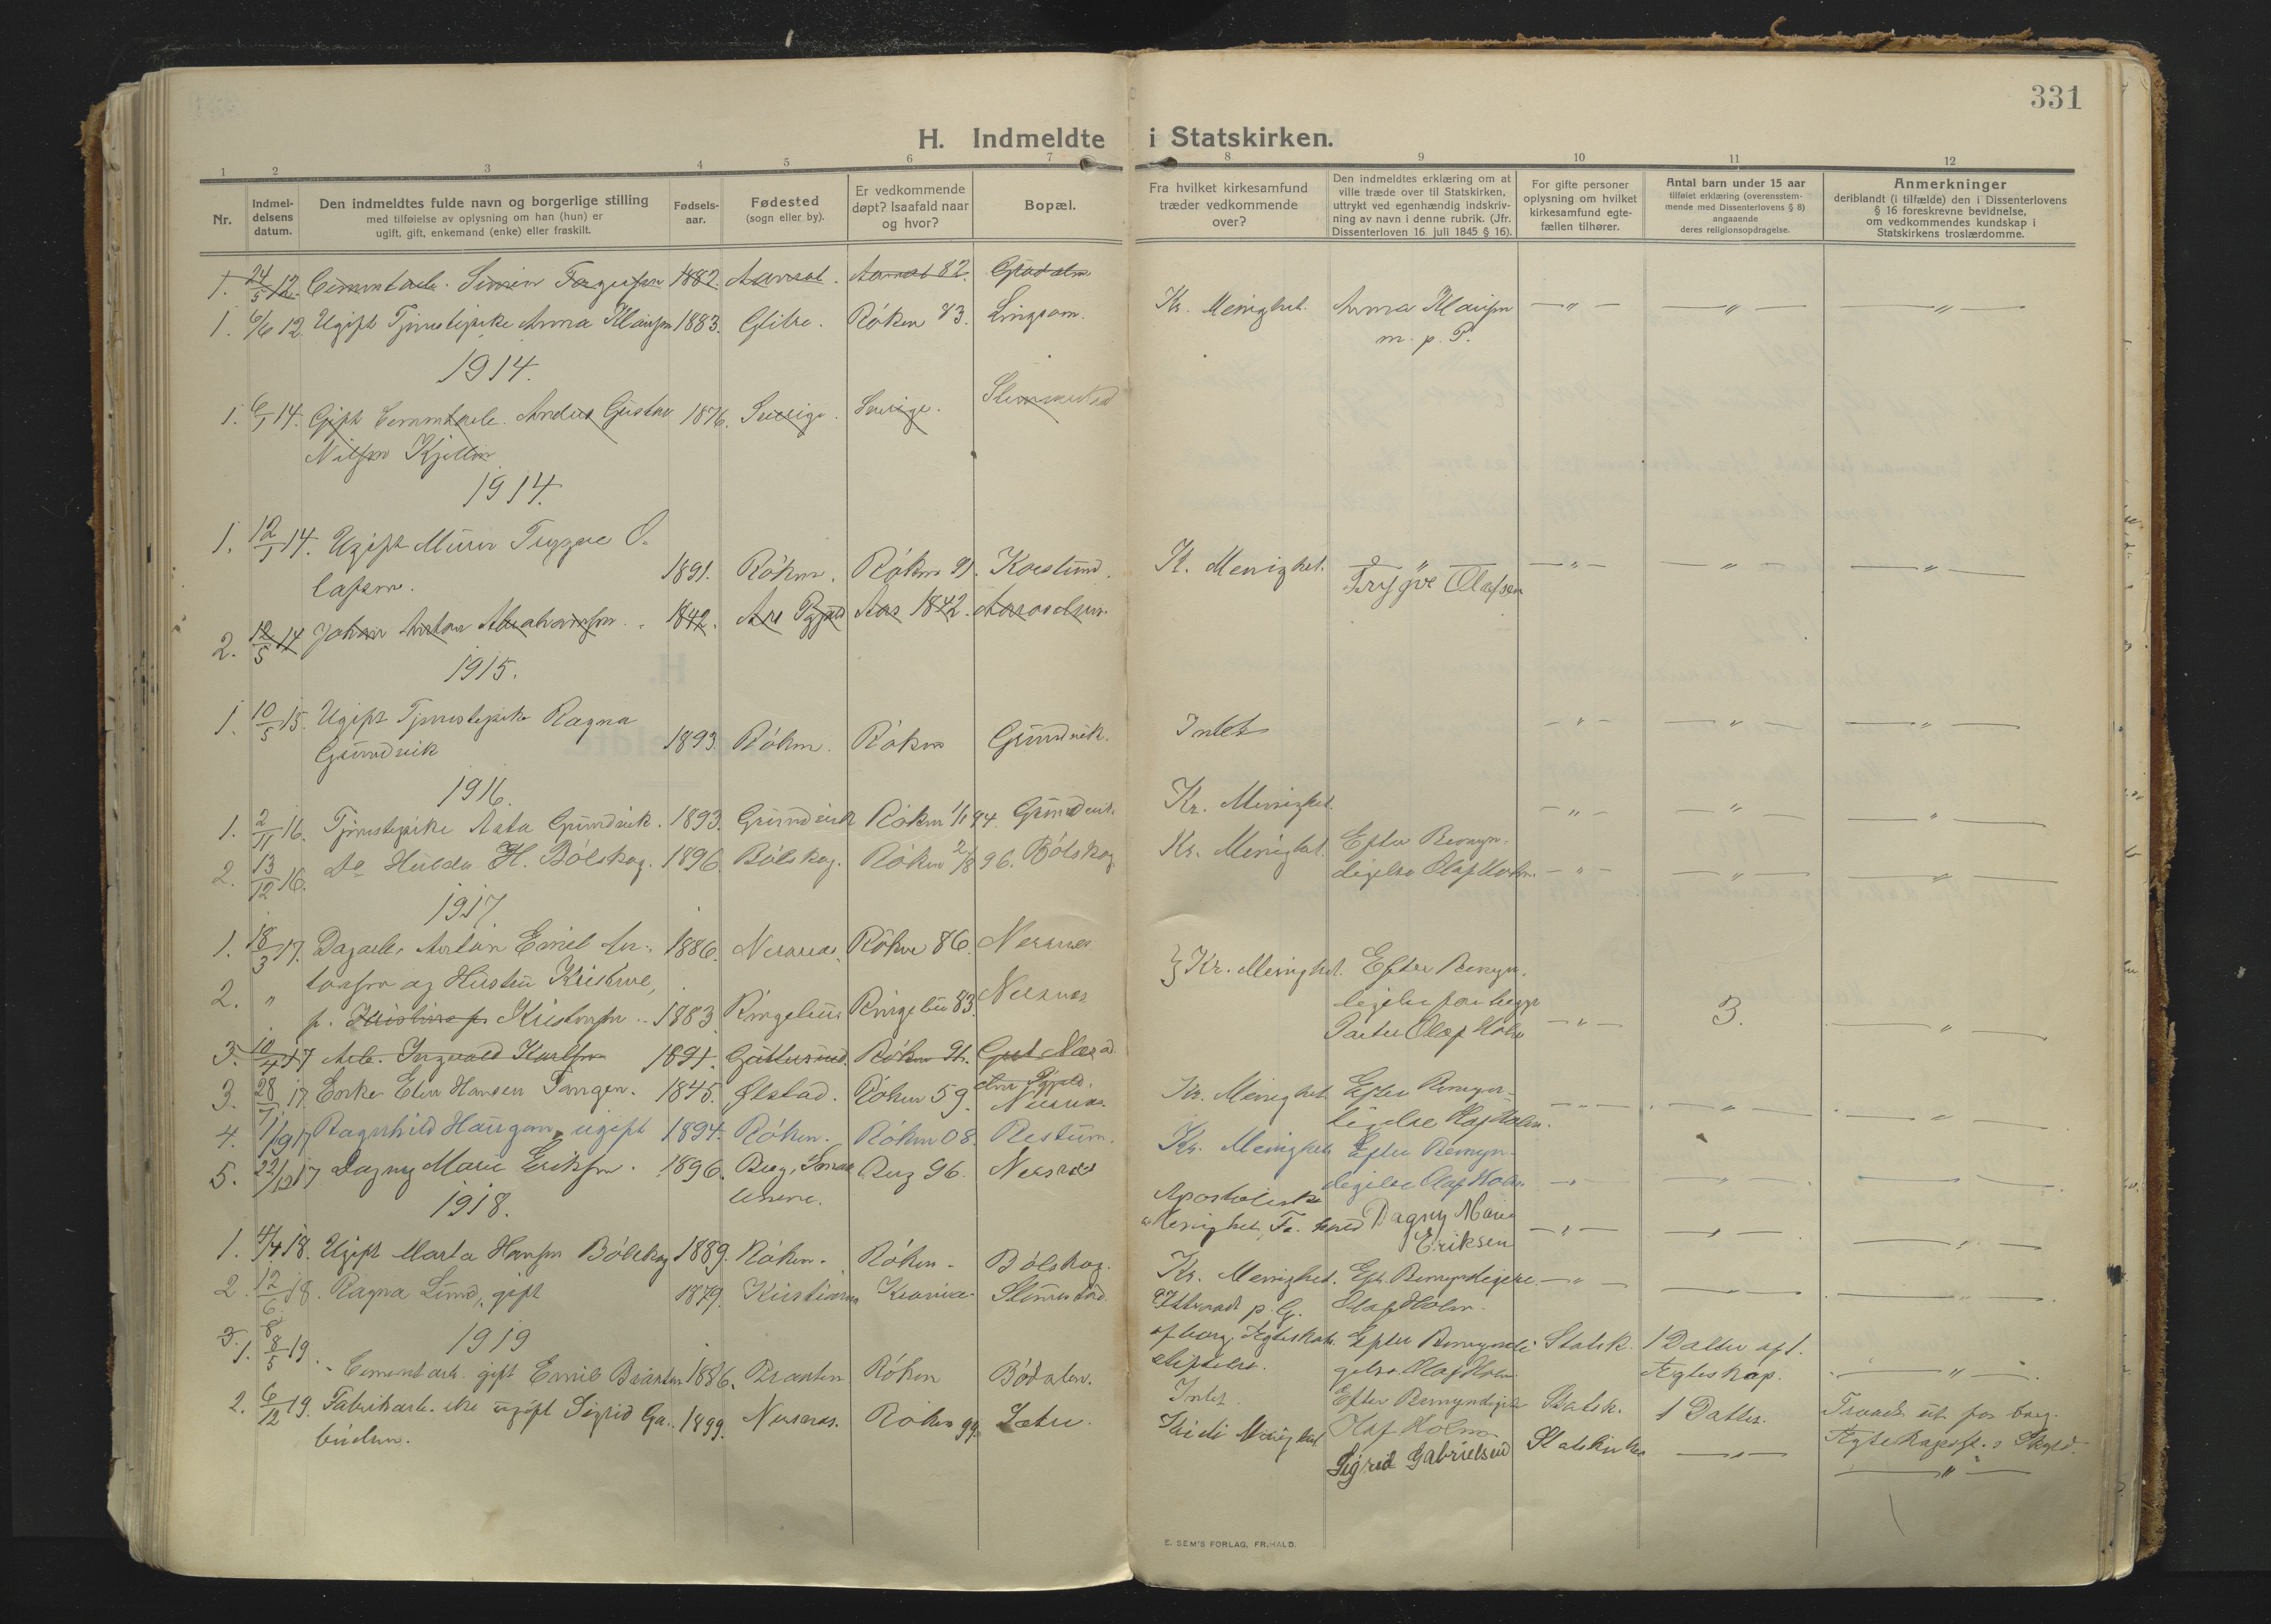 331
H. Indmeldte i Statskirken.
1 2 3 4 5 6 7 8 9 10 11 12
Nr.
Indmel-
delsens
datum.
Den indmeldtes fulde navn og borgerlige stilling
med tilføielse av oplysning om han (hun) er
ugift, gift, enkemand (enke) eller fraskilt.
Fødsels-
aar.
Fødested
(sogn eller by).
Er vedkommende
døpt? Isaafald naar
og hvor?
Bopæl.
Fra hvilket kirkesamfund
træder vedkommende
over?
Den indmeldtes erklæring om at
ville træde over til Statskirken,
uttrykt ved egenhændig indskriv-
ning av navn i denne rubrik. (Jfr.
Dissenterloven 16. juli 1845 § 16).
For gifte personer
oplysning om hvilket
kirkesamfund egte-
fællen tilhører.
Antal barn under 15 aar
tilføiet erklæring (overensstem-
mende med Dissenterlovens § 8)
angaaende
deres religionsopdragelse.
Anmerkninger
deriblandt (i tilfælde) den i Dissenterlovens
§ 16 foreskrevne bevidnelse,
om vedkommendes kundskap i
Statskirkens troslærdomme.
1. 24/5 12. Cementarb. 1882.
1. 6/6 12. Ugift Tjenestepike Anna Klausen 1883. Glitre. Røken 83. Kr. Menighet. Anna Klausen — " — — " — — " —
m. p. P.
1914.
1. 6/1 14. Gift Cementarb. Gustav 1876. Sverige. Sverige. Slemmestad
Nilsen
1914.
1. 12/1 14. Ugift Murer Trygve O-
lafsen. 1891. Røken. Røken 91. Kr. Menighet. — " — — " — — " — — " —
Trygve Olafsen
2. 12/5 14 Johan Anton Abrahamsen 1842. Aas 1842.
1915.
1. 10/5 15. Ugift Tjenestepike Ragna
Grundvik 1893. Røken. Røken Grundvik. Intet — " — — " — — " —
1916.
1. 2/11 16. Tjenestepike Aasta Grundvik. 1893. Grundvik Røken 94. Grundvik. Kr. Menighet. — " — — " — — " —
2. 13/12 16. Do Hulda H. Bølskog. 1896. Bølskog. Røken 2/8 96. Bølskog Kr. Menighet. Efter Bemyn-
digelse Olaf Holm. — " — — " — — " —
1917.
1. 18/3 17. Dagarb. Anton Emil An- 1886. Nersnes. Røken 86. Nersnes
tonsen og Hustru Kristine,
2. " f. Kristensen 1883. Ringebu Ringebu 83. Nersnes
} Kr. Menighet. Efter Bemyn-
digelse for begge
Parter Olaf Holm — " — 3. — " —
3. 10/4 17 Arb. Ingvald Karlsen 1891. Røken 91.
3. 28/7 17. Enke Elen Hansen Tangen. 1845. Ølstad. Røken 59. Nersnes. Kr. Menighet Efter Bemyn-
digelse Olaf Holm.
4. 1/9 17 Ragnhild Haugan, ugift 1894. Røken. Røken 08. Kr. Menighet Efter Bemyn-
digelse Olaf Holm.
5. 22/12 17 Dagny Marie Eriksen. 1896. Berg, Smaa-
lenene. Berg 96. Nersnes Apostolisk
Menighet, Dagny Marie
Eriksen
1918.
1. 4/4 18. Ugift Marta Hansen Bølskog 1889. Røken. Røken. Bølskog. Kr. Menighet. Eft. Bemyndigelse
Olaf Holm.
2. 12/6 18. Ragna Lund, gift 1879. Kristiania Slemmestad. Uttraadt p. G.
af borg. Egteskabs
stiftelse. Efter Bemyndi-
gelse Olaf Holm Statsk. 1 Datter af 1.
Egteskap. — " —
1919
1. 8/5 19. Cementarb. gift Emil Braaten 1886. Braaten Røken Bødalen. Intet Efter Bemyndigelse
Olaf Holm Statsk. 1 Datter. Traadt ut for borg.
Egteskapsst.s Skyld.
2. 6/12 19. Fabrikarb.ske ugift Sigrid Ga-
brielsen. 1899. Nersnes. Røken 99. Menighet Sigrid Gabrielsen Statskirken — " — — " —
E. SEM'S FORLAG, FR.HALD.